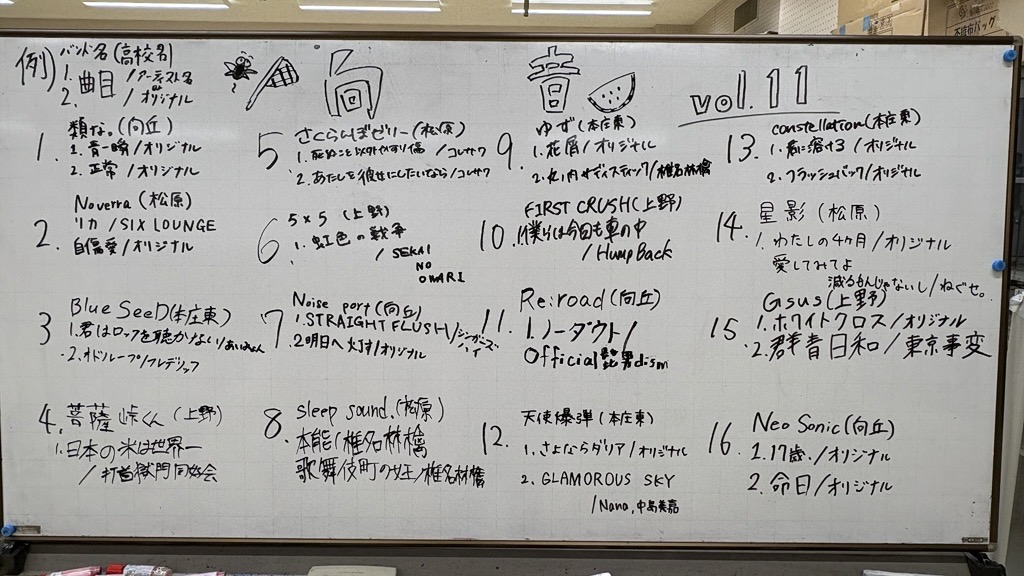 例) バンド名(高校名)
1. 曲目 /アーティスト名 or
2. /オリジナル
向 音 vol.11
1. 類な。(向丘)
1. 青一瞬/オリジナル
2. 正常/オリジナル
2. Noverra(松原)
リカ/SIX LOUNGE
自傷愛/オリジナル
3 Blue SeeD(本庄東)
1.君はロックを聴かない/あいみょん
2.オドループ/フレデリック
4. 菩薩峠くん(上野)
1.日本の米は世界一
/打首獄門同好会
5 さくらんぼゼリー(松原)
1.死ぬこと以外かすり傷/コレサワ
2.あたしを彼女にしたいなら/コレサワ
6 5×5(上野)
1. 虹色の戦争
/SEKAI
NO
OWARI
7 Noise port(向丘)
1.STRAIGHT FLUSH/ジーガーズハイ
2.明日へ灯す/オリジナル
8. sleep sound.(松原)
本能/椎名林檎
歌舞伎町の女王/椎名林檎
9. ゆず(本庄東)
1.花屑/オリジナル
2.丸ノ内サディスティック/椎名林檎
10. FIRST CRUSH(上野)
1.僕らは今日も車の中
/Hump Back
11. Re:road(向丘)
1.ノーダウト/
Official髭男dism
12. 天使爆弾(本庄東)
1.さよならダリア/オリジナル
2. GLAMOROUS SKY
/Nana,中島美嘉
13. constellation(本庄東)
1.君に溶ける/オリジナル
2.フラッシュバック/オリジナル
14. 星影(松原)
1.わたしの4ヶ月/オリジナル
愛してみてよ
減るもんじゃないし/ねぐせ。
15. Gsus(上野)
1.ホワイトクロス/オリジナル
2.群青日和/東京事変
16. Neo Sonic(向丘)
1.17歳、/オリジナル
2.命日/オリジナル